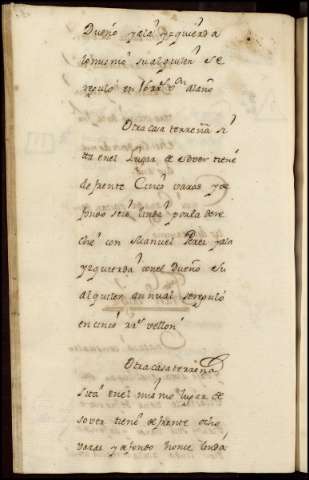 Dueño y ala yzquierda
lo mismo su alquiler se
reguló en 16 rrs. vn. al año
Otra casa terreña si
tta en el Lugar de sover tiene
de frente Cinco varas y de
fondo seis linda por la dere
cha con Manuel Perez y ala
yzquierda con el Dueño su
alquiler annual se reguló
en cinco rrs. vellon
Otra casa terreña
sita en el mismo lugar de
sover tiene de frente ocho
varas y de fondo honce linda